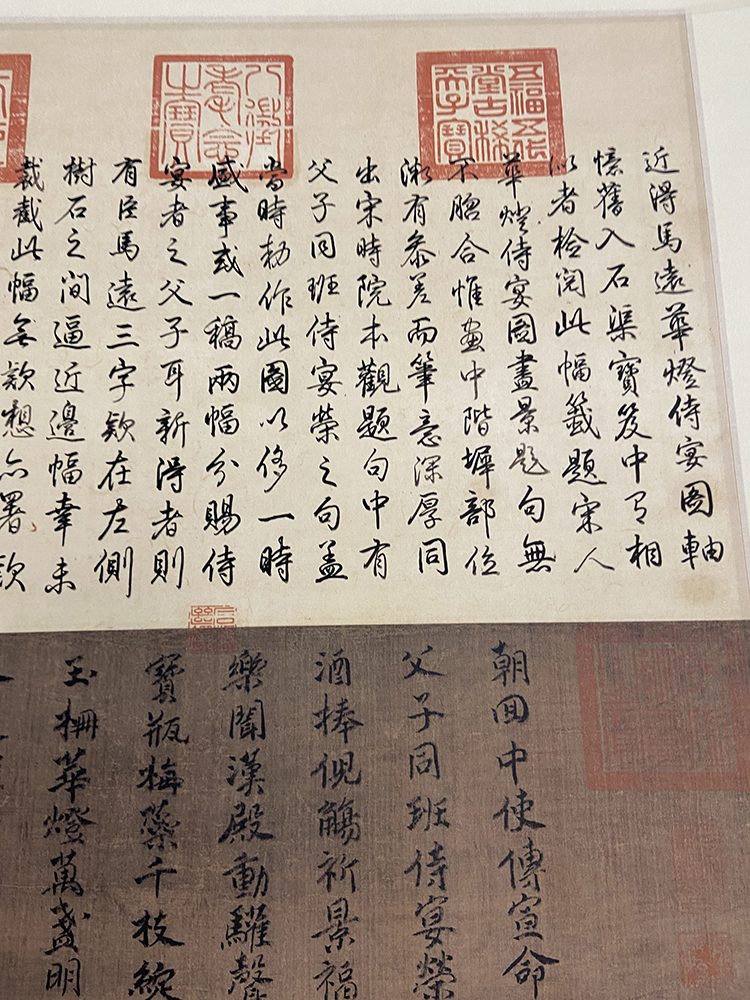 五福五代堂古稀天子寶
八徵耄念之寶
近得馬遠華燈侍宴圖軸
憶舊入石渠寶笈中有相
似者檢閱此幅籤題宋人
華燈侍宴圖畫景題句無
不脗合惟畫中階墀部位
有參差而筆意深厚同
出宋時院本觀題句中有
父子同班侍宴榮之句蓋
當時勅作此圖以侈一時
盛事或一稿兩幅分賜侍
宴者之父子耳新得者則
有臣馬遠三字欵在左側
樹石之間逼近邊幅幸未
裁截此幅無欵想亦署欵
朝回中使傳宣命
父子同班侍宴榮
酒捧倪觴祈景福
樂聞漢殿動驩聲
寶瓶梅蘂千枝綻
玉柵華燈萬盞明